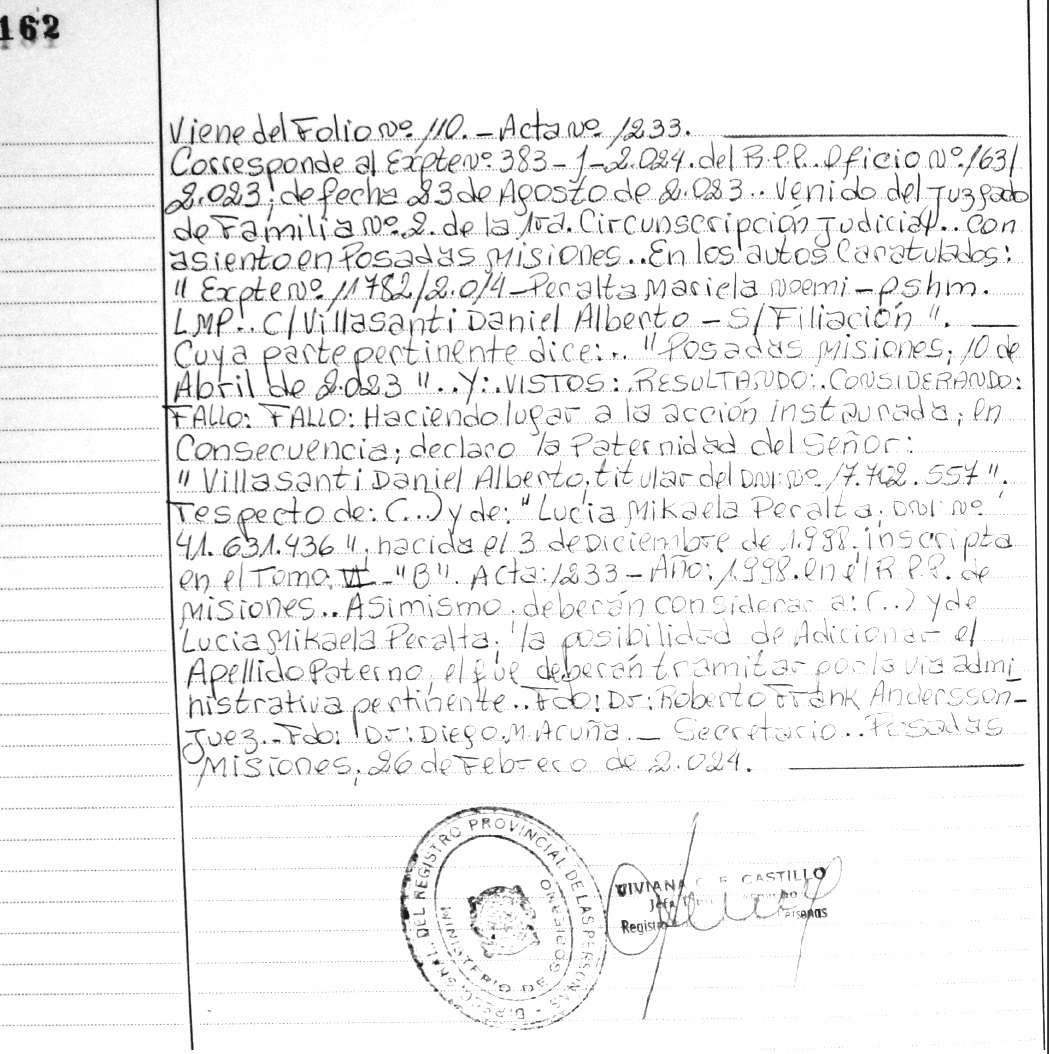 162
Viene del Folio Nº 110. - Acta Nº 1233.
Corresponde al Expte Nº 383-1-2.024. del R.P.P.. Oficio Nº 163/
2.023; de fecha 23 de Agosto de 2.023.. venido del Juzgado
de Familia Nº 2. de la 1ra. Circunscripción Judicial.. con
asiento en Posadas Misiones.. En los autos Caratulados:
" Expte Nº 11782/2.014-Peralta Mariela Noemi-P.s.h.m.
LMP.. C/ Villasanti Daniel Alberto - S/ Filiación ".
Cuya parte pertinente dice:.. "Posadas Misiones; 10 de
Abril de 2.023 "..Y:.VISTOS:.RESULTANDO:.CONSIDERANDO:
FALLO: FALLO: Haciendo lugar a la acción instaurada; en
Consecuencia; declaro la Paternidad del Señor:
" Villasanti Daniel Alberto, titular del DNI: Nº 17.702.557 ".
respecto de: (..) y de: "Lucia Mikaela Peralta; DNI Nº
41.631.436 ", nacida el 3 de Diciembre de 1.998. inscripta
en el Tomo; VI - "B". Acta: 1233 - Año: 1.998. en el R.P.P. de
Misiones.. Asimismo. deberán considerar a: (..) y de
Lucia Mikaela Peralta; la posibilidad de Adicionar el
Apellido Paterno, el que deberán tramitar por la via admi
nistrativa pertinente.. Fdo: Dr: Roberto Frank Andersson-
Juez.. Fdo: Dr: Diego. M. Acuña. _ Secretario.. Posadas
Misiones; 26 de Febrero de 2.024.
DIRECC. GRAL. DEL REGISTRO PROVINCIAL DE LAS PERSONAS -
MINISTERIO DE GOBIERNO
VIVIANA CASTILLO
Jefa
Registro